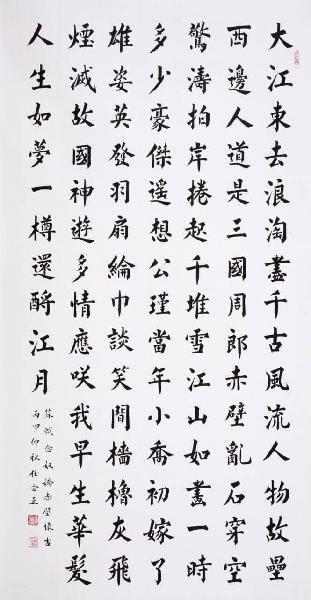 大江東去浪淘盡千古風流人物故壘
西邊人道是三國周郎赤壁亂石穿空
驚濤拍岸捲起千堆雪江山如畫一時
多少豪傑遙想公瑾當年小喬初嫁了
雄姿英發羽扇綸巾談笑間檣櫓灰飛
煙滅故國神遊多情應咲我早生華髮
人生如夢一樽還酹江月
蘇軾念奴嬌赤壁懷古